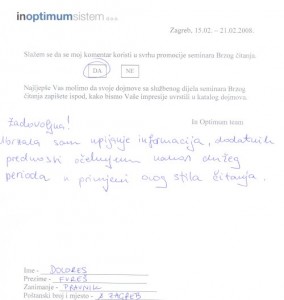 inoptimumsistem d.o.o
Zagreb, 15.02. – 21.02.2008.
Slažem se da se moj komentar koristi u svrhu promocije seminara Brzog čitanja.
DA NE
Najljepše Vas molimo da svoje dojmove sa službenog dijela seminara Brzog
čitanja zapišete ispod, kako bismo Vaše impresije uvrstili u katalog dojmova.
In Optimum team
Zadovoljna!
Ubrzala sam upijanje informacija, dodatnih
prednosti očekujem nakon dužeg
perioda u primjeni ovog stila čitanja.
Ime - DOLORES
Prezime - FUREŠ
Zanimanje - PRAVNIK
Poštanski broj i mjesto - ZAGREB